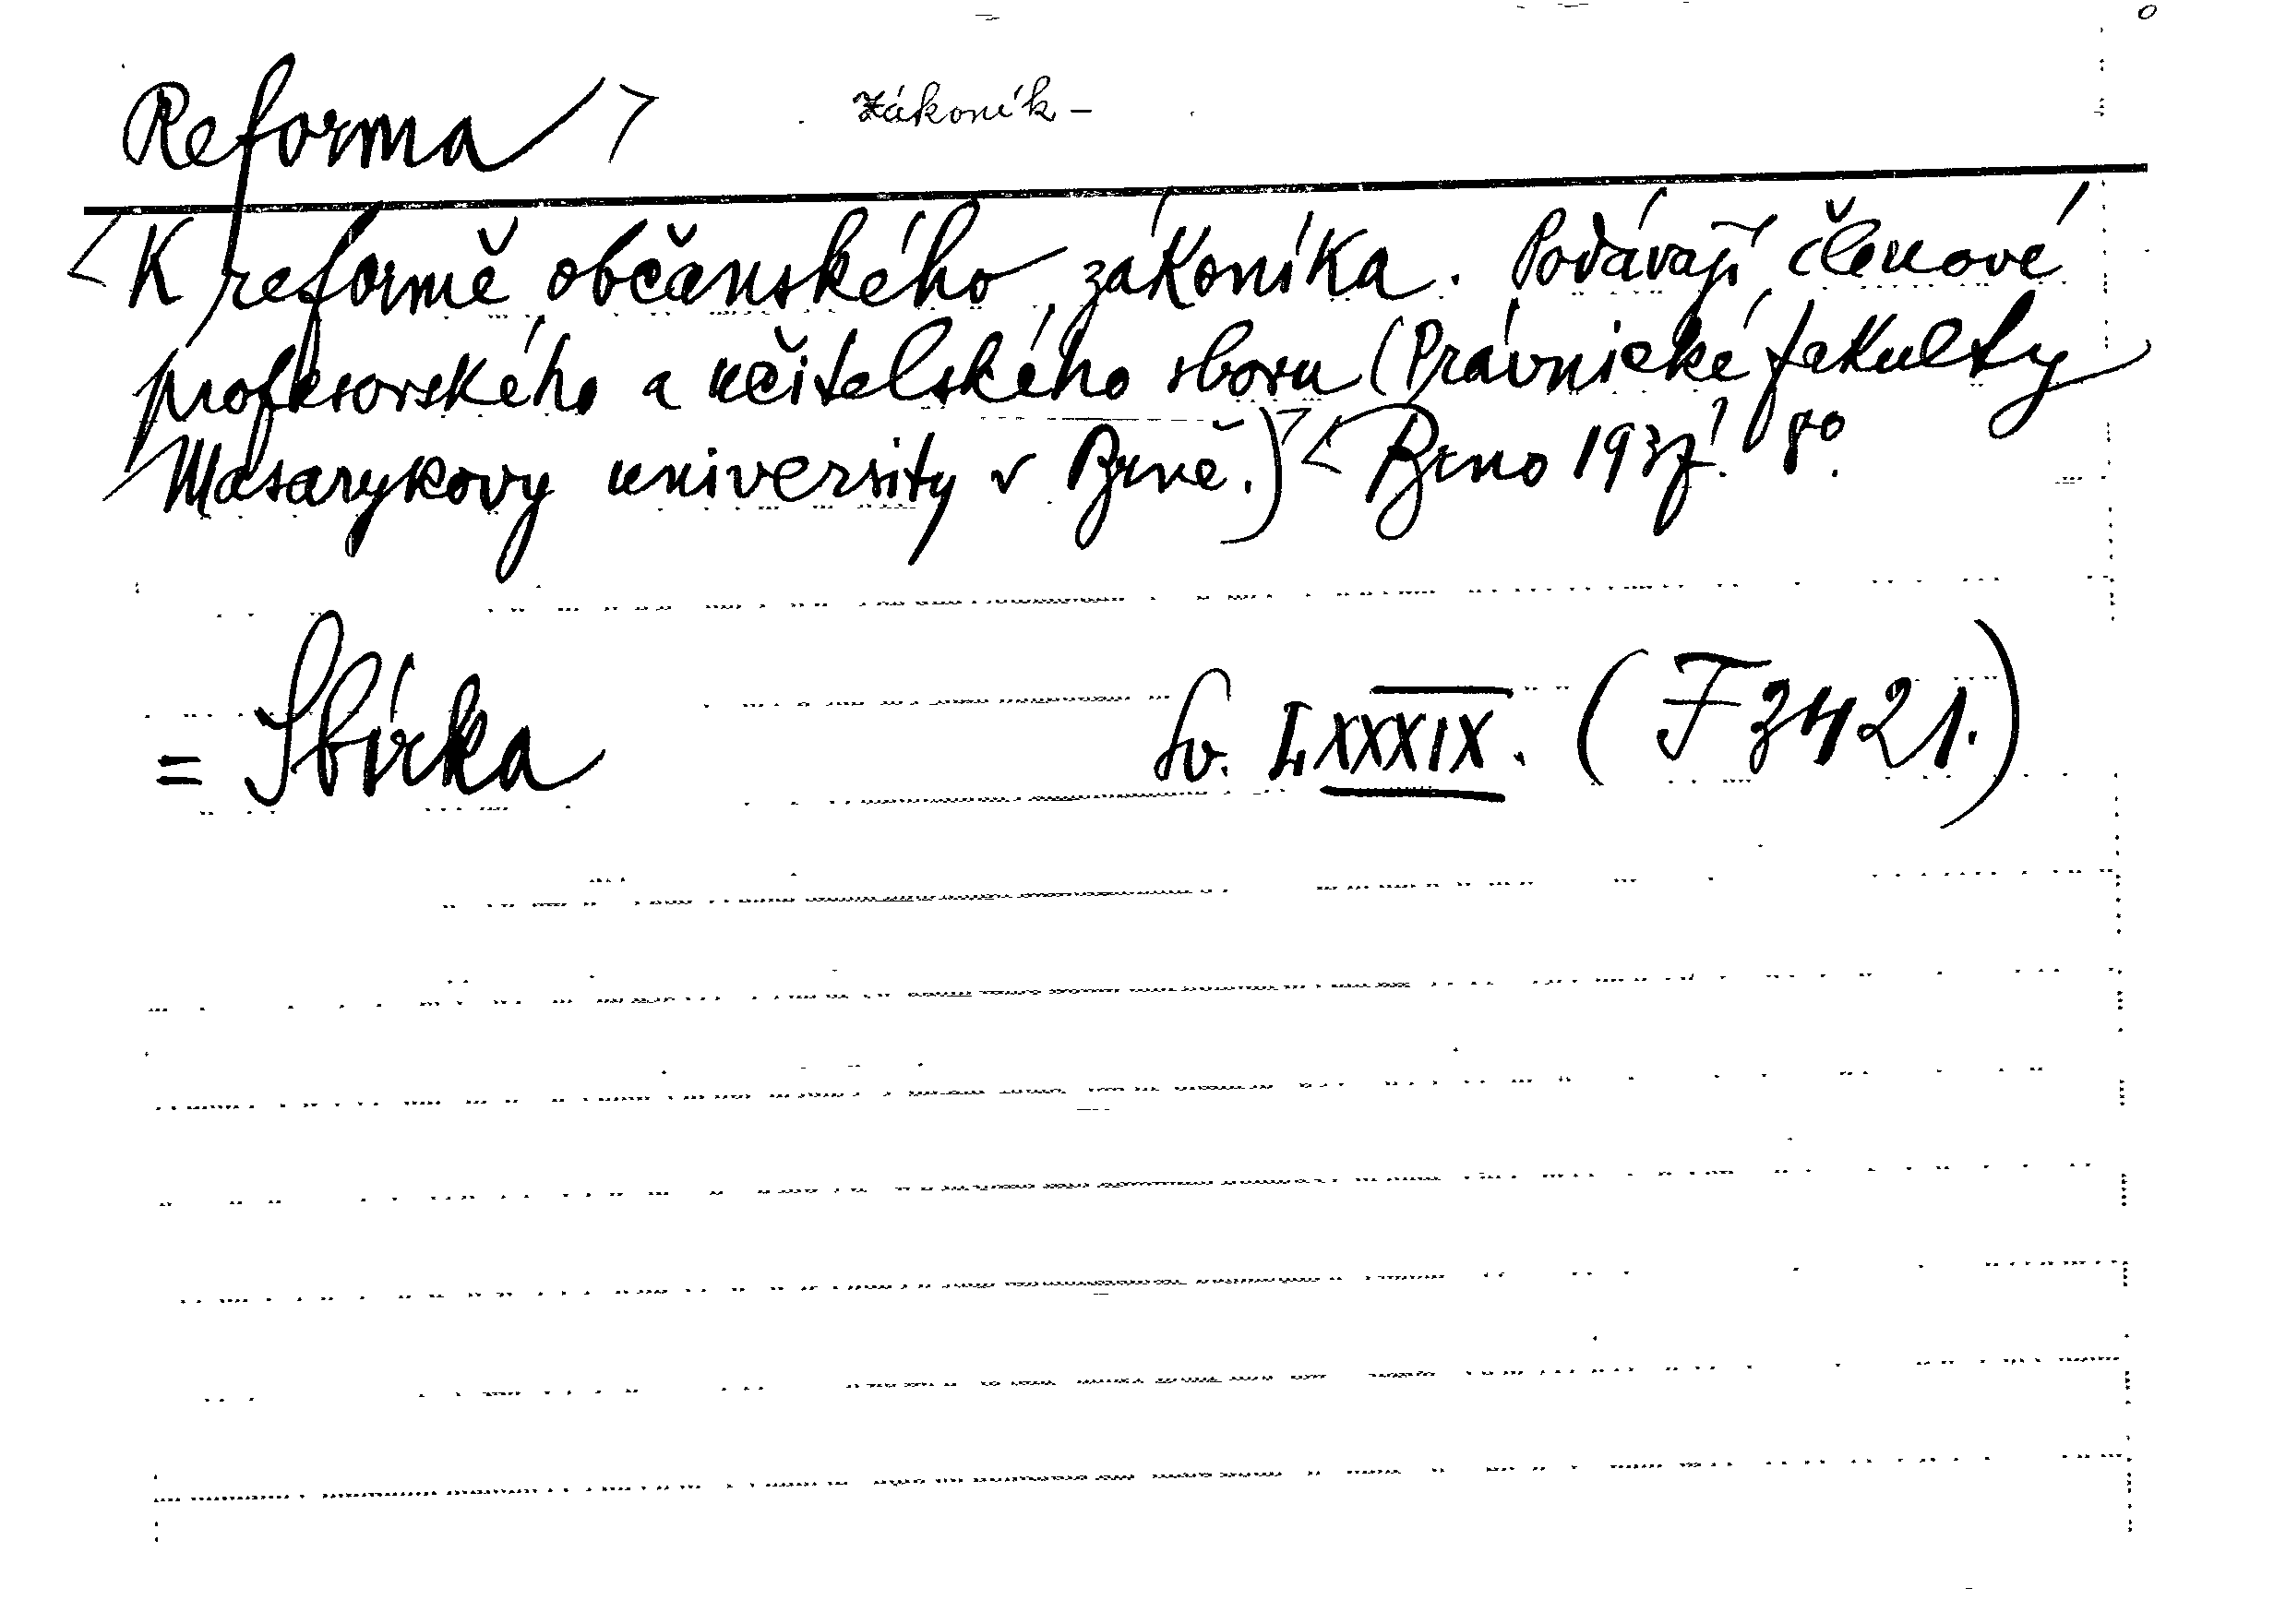 Reforma > Zákoník –
<K reformě občanského zákoníka. Podávají členové
profesorského a učitelského sboru (Právnické fakulty
Masarykovy university v Brně.)> <Brno 1937. 8º.
= Sbírka Sv. LXXXIX. (F 3421.)